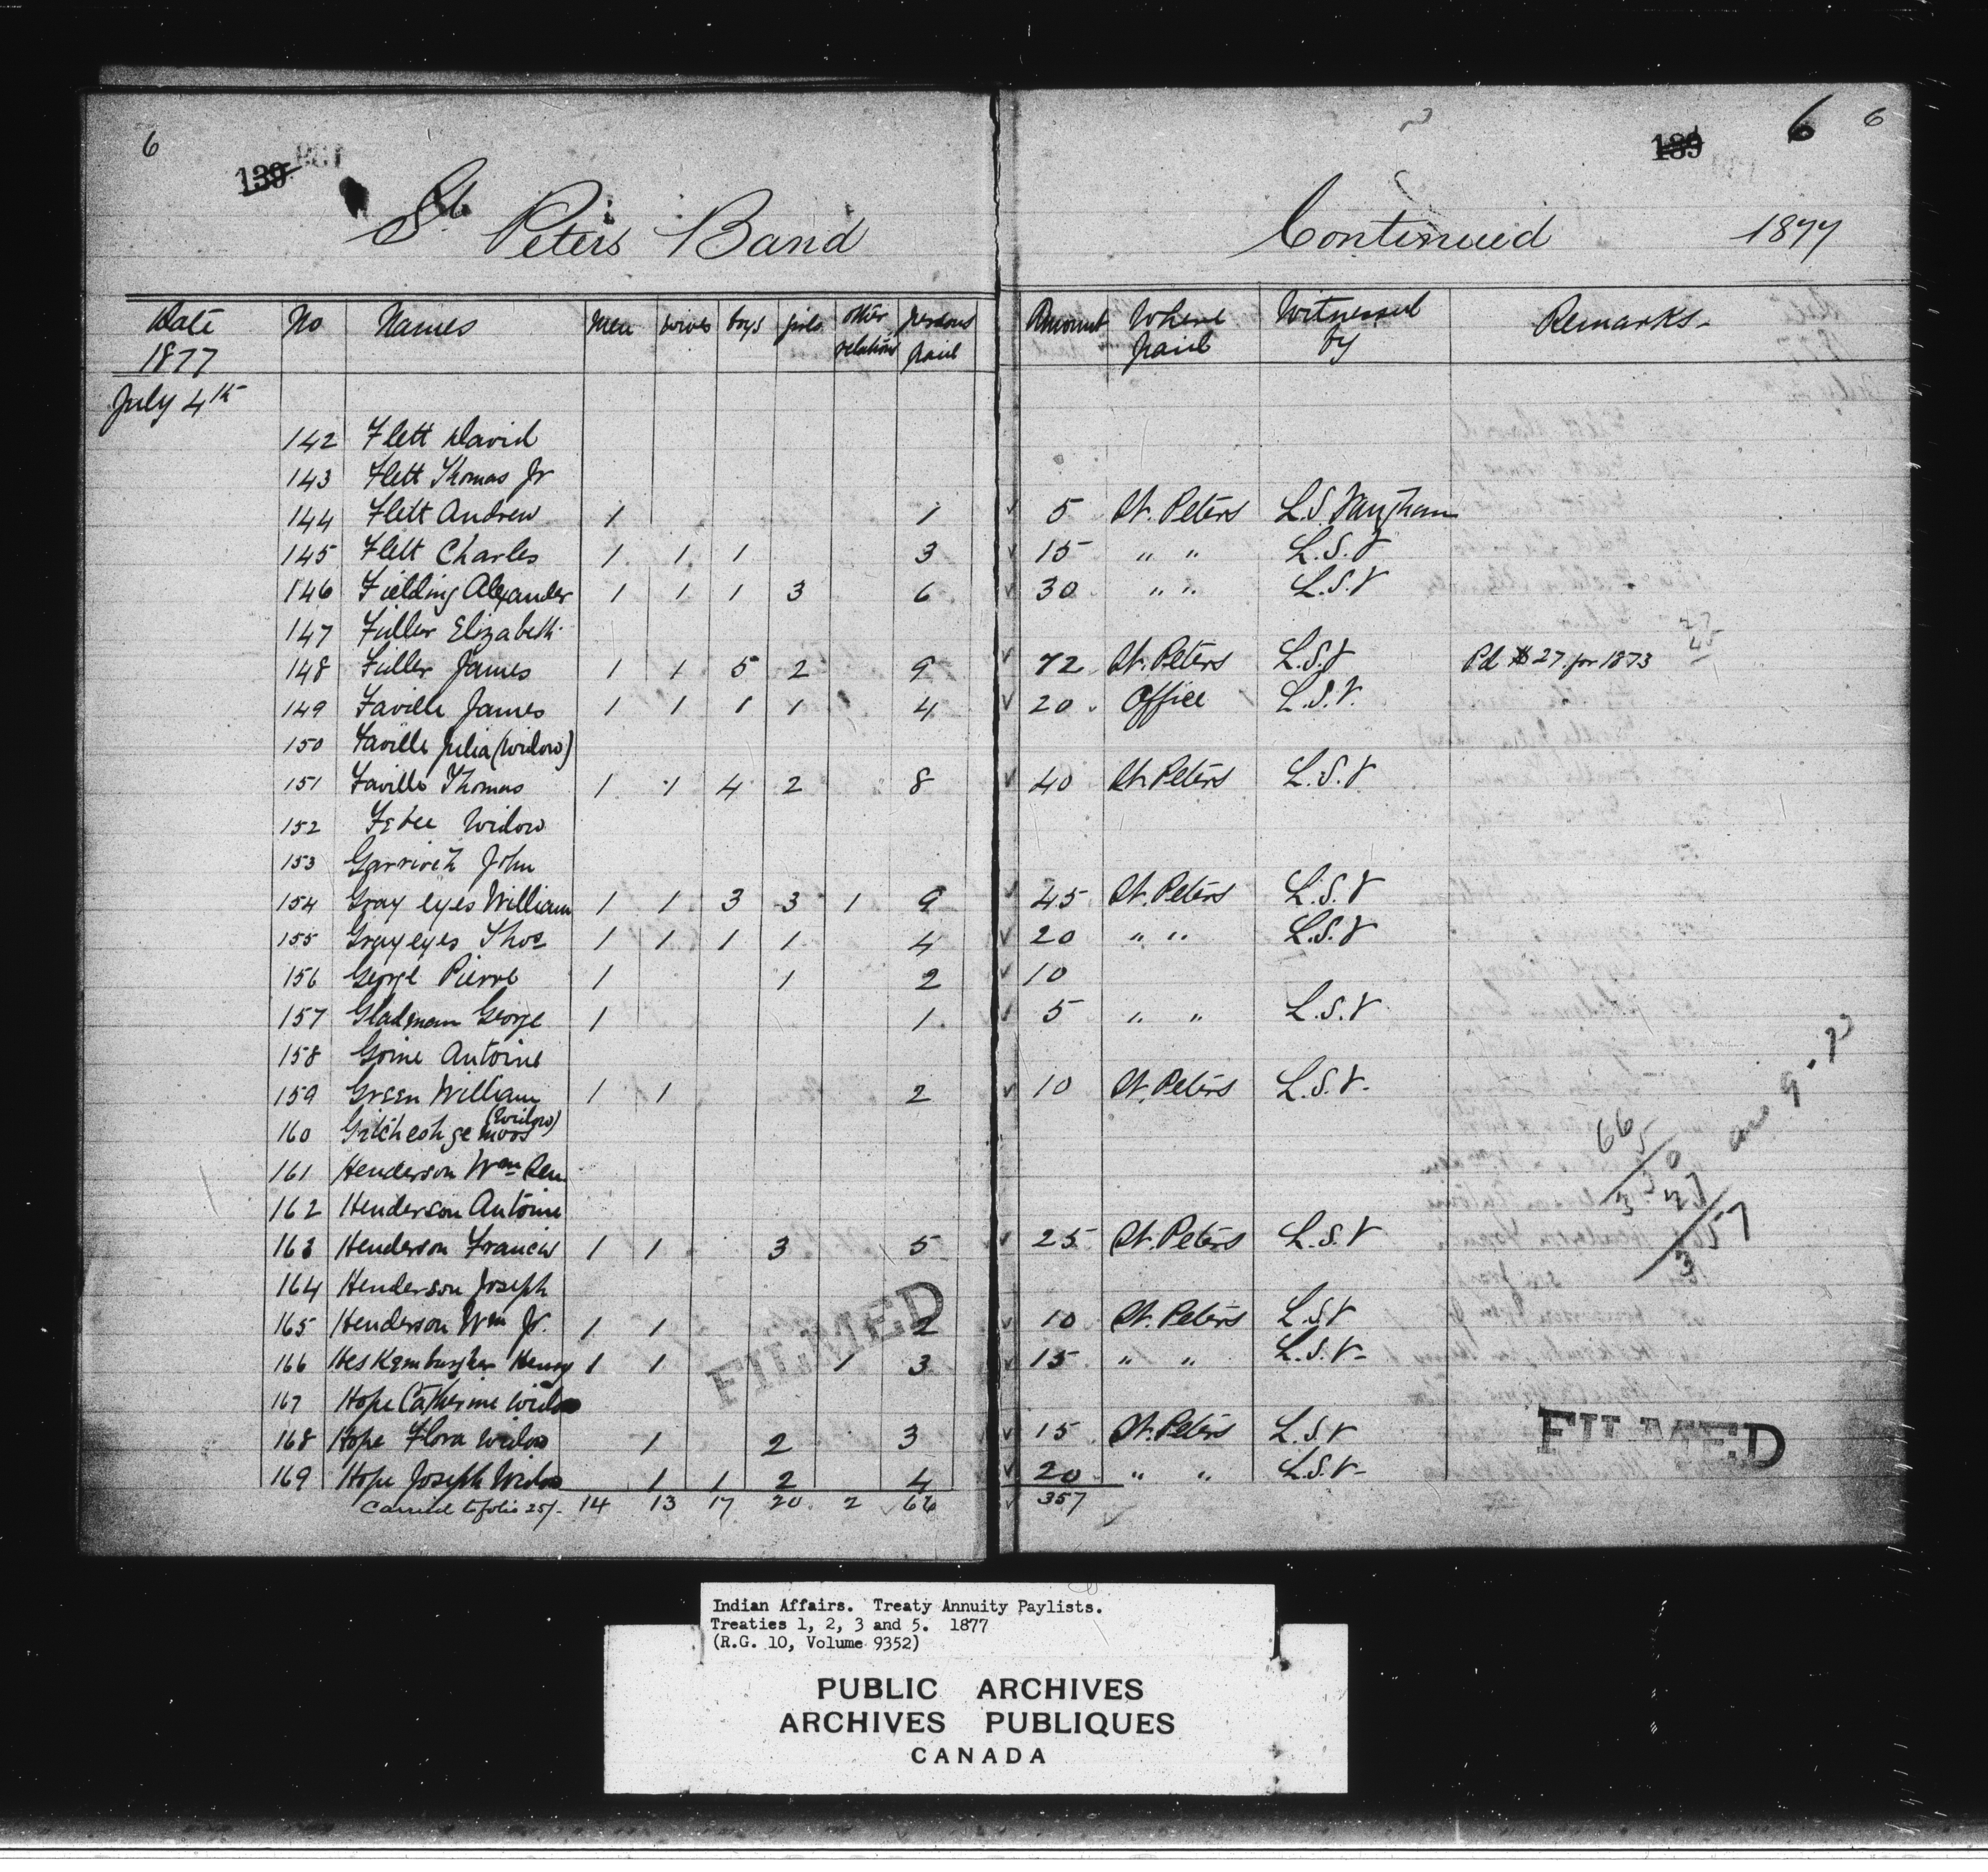 6
139
St Peters Band
Continued 1877
139 6 6
Date 1877 No Names Men wives boys girls other relations persons paid Amount Where paid Witnessed by Remarks
July 4th
142 Flett David
143 Flett Thomas Jr
144 Flett Andrew 1 1 5 St. Peters L.S. Vaughan
145 Flett Charles 1 1 1 3 15 " " L.S.V
146 Fielding Alexander 1 1 1 3 6 30 " " L.S.V
147 Fuller Elizabeth
148 Fuller James 1 1 5 2 9 72 St. Peters L.S.V Pd $27 for 1873 27 45
149 Faville James 1 1 1 1 4 20 Office L.S.V.
150 Faville Julia (Widow)
151 Faville Thomas 1 1 4 2 8 40 St. Peters L.S.V
152 Widow
153 John
154 Gray eyes William 1 1 3 3 1 9 45 St. Peters L.S.V
155 Gray eyes Thos 1 1 1 1 4 20 " " L.S.V
156 George Pierre 1 1 2 10
157 Gladman George 1 1 5 " " L.S.V
158 Goine Antoine
159 Green William 1 1 2 10 St. Peters L.S.V.
160 (Widow)
161 Henderson Wm Sen
162 Henderson Antoine
163 Henderson Francis 1 1 3 5 25 St. Peters L.S.V
164 Henderson Joseph
165 Henderson Wm Jr. 1 1 2 10 St. Peters L.S.V
166 Henry 1 1 1 3 15 " " L.S.V.
167 Hope Catherine Widow
168 Hope Flora Widow 1 2 3 15 St. Peters L.S.V
169 Hope Joseph Widow 1 1 2 4 20 " " L.S.V.
Carried to folio 251. 14 13 17 20 2 66 357
66
5
330
27
357
FILMED
FILMED
Indian Affairs. Treaty Annuity Paylists.
Treaties 1, 2, 3 and 5. 1877
(R.G. 10, Volume 9352)
PUBLIC ARCHIVES
ARCHIVES PUBLIQUES
CANADA